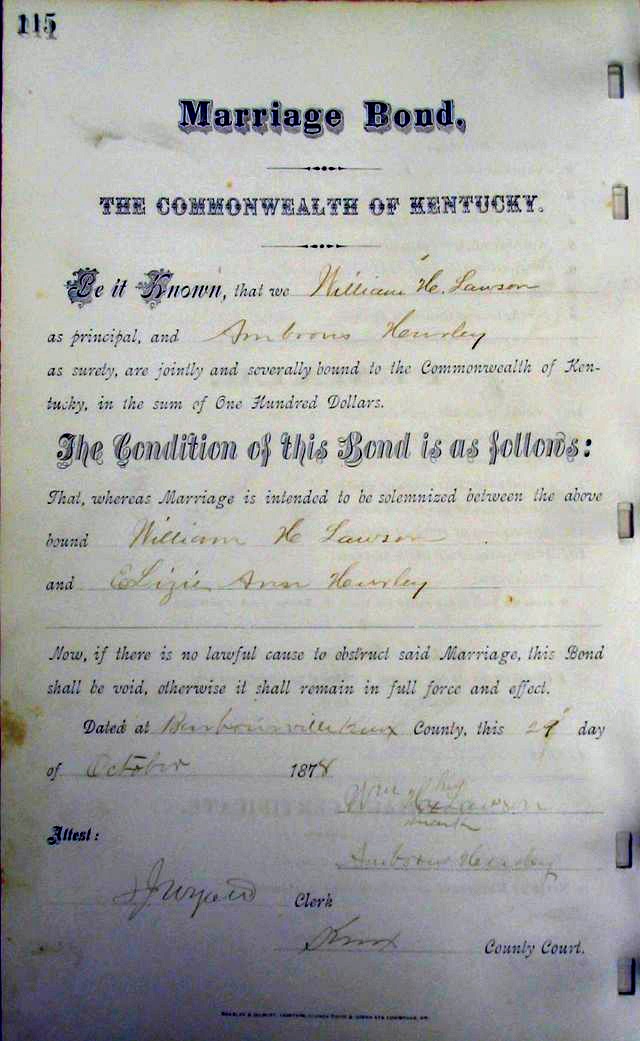 115
Marriage Bond.
THE COMMONWEALTH OF KENTUCKY.
Be it Known, that we William H. Lawson
as principal, and Ambrous Hensley
as surety, are jointly and severally bound to the Commonwealth of Ken-
tucky, in the sum of One Hundred Dollars.
The Condition of this Bond is as follows:
That, whereas Marriage is intended to be solemnized between the above
bound William H Lawson
and Ann Hensley
Now, if there is no lawful cause to obstruct said Marriage, this Bond
shall be void, otherwise it shall remain in full force and effect.
Dated at Barbourville Knox County, this 29 day
of October 1878
his
Wm H x Lawson
mark
Attest:
Ambrous Hensley
Clerk
Knox County Court.